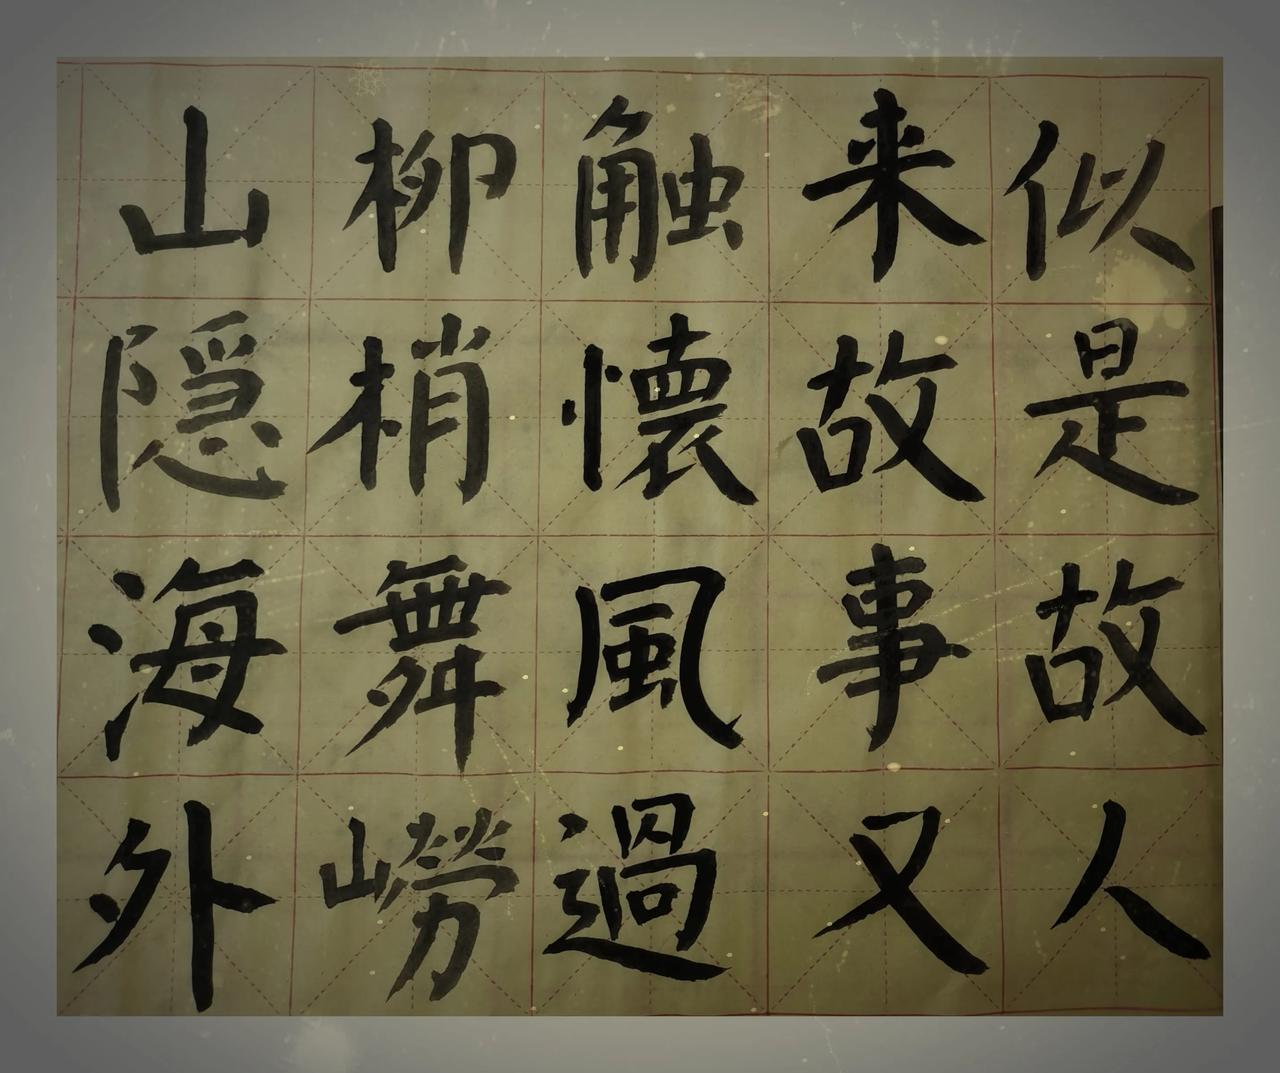 似是故人
来故事又
触懐風過
柳梢舞嶗
山隠海外